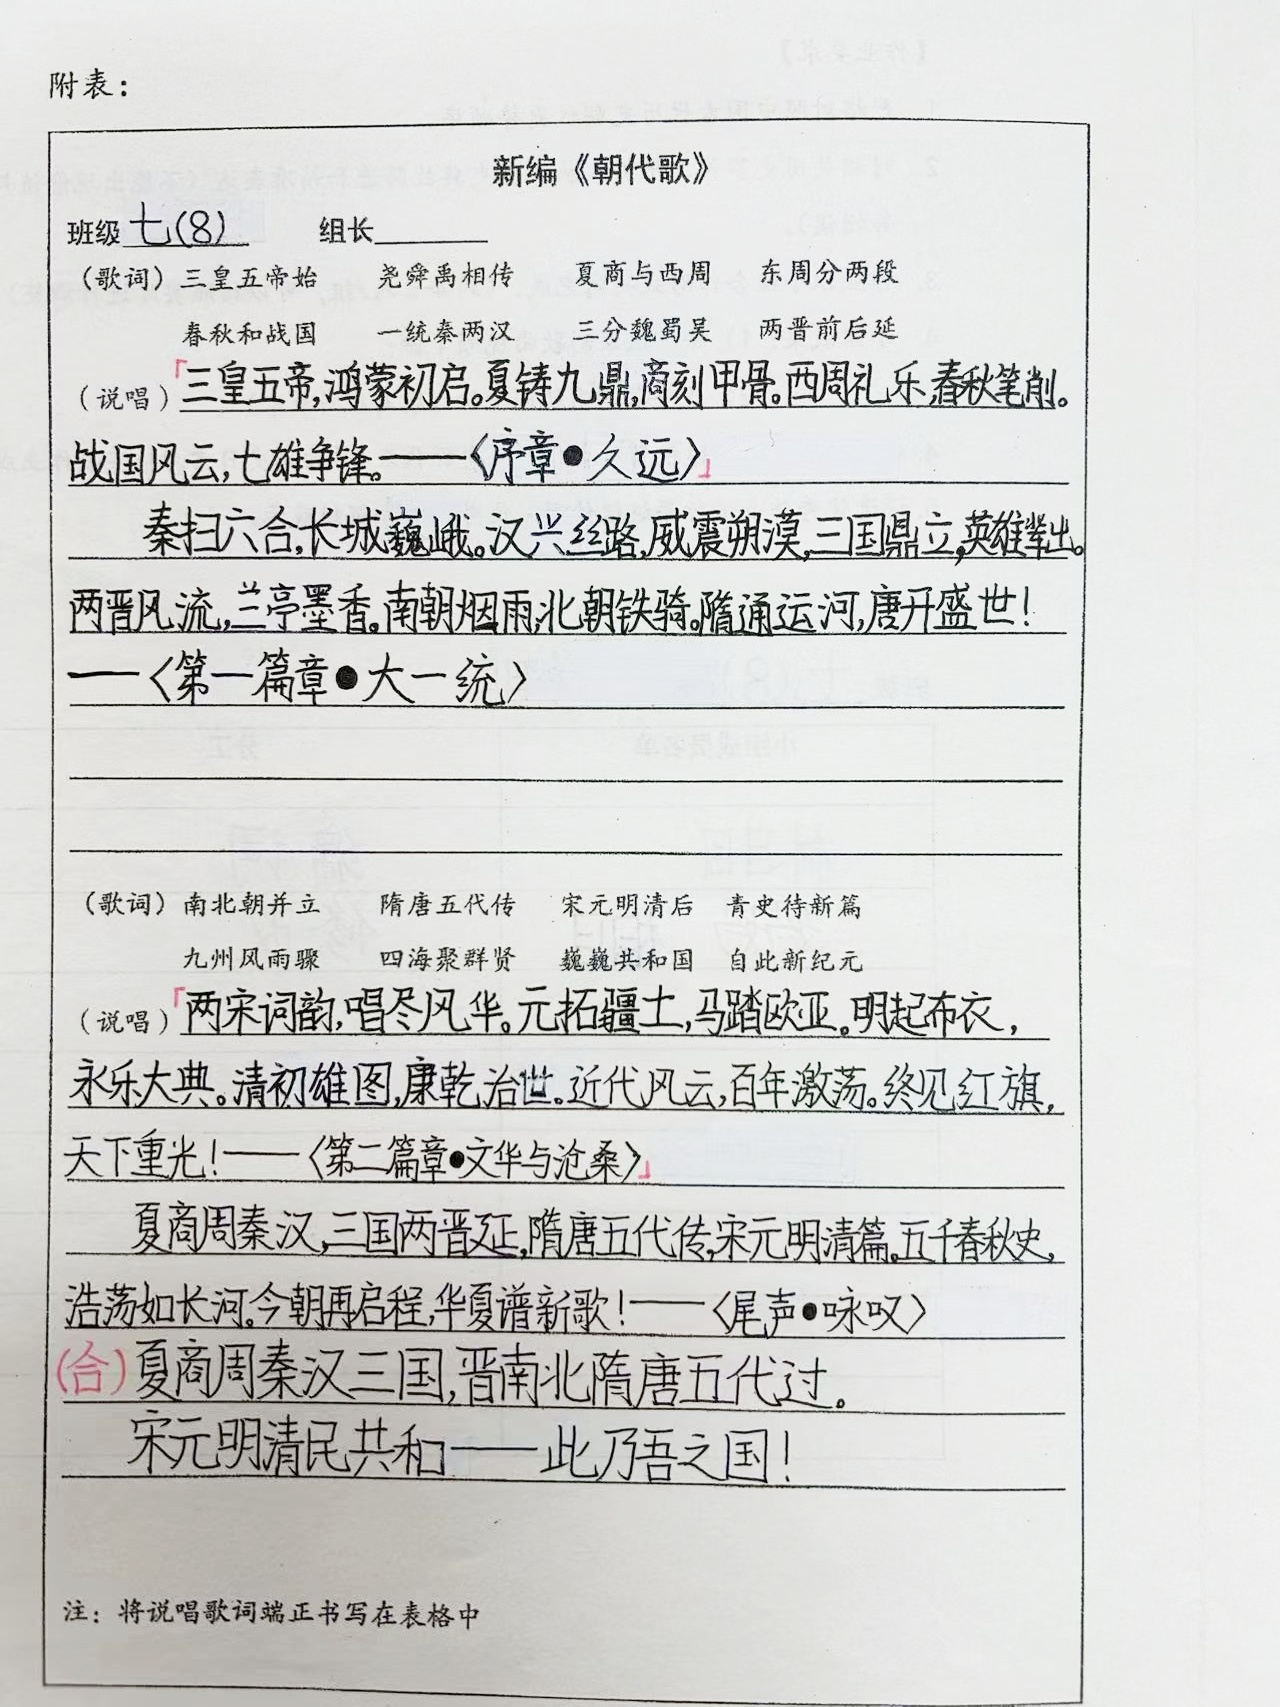 附表：
新编《朝代歌》
班级 七(8) 组长
（歌词）三皇五帝始 尧舜禹相传 夏商与西周 东周分两段
春秋和战国 一统秦两汉 三分魏蜀吴 两晋前后延
（说唱）「三皇五帝,鸿蒙初启。夏铸九鼎,商刻甲骨。西周礼乐,春秋笔削。
战国风云,七雄争锋。——〈序章•久远〉」
秦扫六合,长城巍峨。汉兴丝路,威震朔漠,三国鼎立,英雄辈出。
两晋风流,兰亭墨香。南朝烟雨,北朝铁骑。隋通运河,唐开盛世!
——〈第一篇章•大一统〉
（歌词）南北朝并立 隋唐五代传 宋元明清后 青史待新篇
九州风雨骤 四海聚群贤 巍巍共和国 自此新纪元
（说唱）「两宋词韵,唱尽风华。元拓疆土,马踏欧亚。明起布衣,
永乐大典。清初雄图,康乾治世。近代风云,百年激荡。终见红旗,
天下重光!——〈第二篇章•文华与沧桑〉」
夏商周秦汉,三国两晋延,隋唐五代传,宋元明清篇。五千春秋史,
浩荡如长河。今朝再启程,华夏谱新歌!——〈尾声•咏叹〉
(合)夏商周秦汉三国,晋南北隋唐五代过。
宋元明清民共和——此乃吾之国!
注：将说唱歌词端正书写在表格中